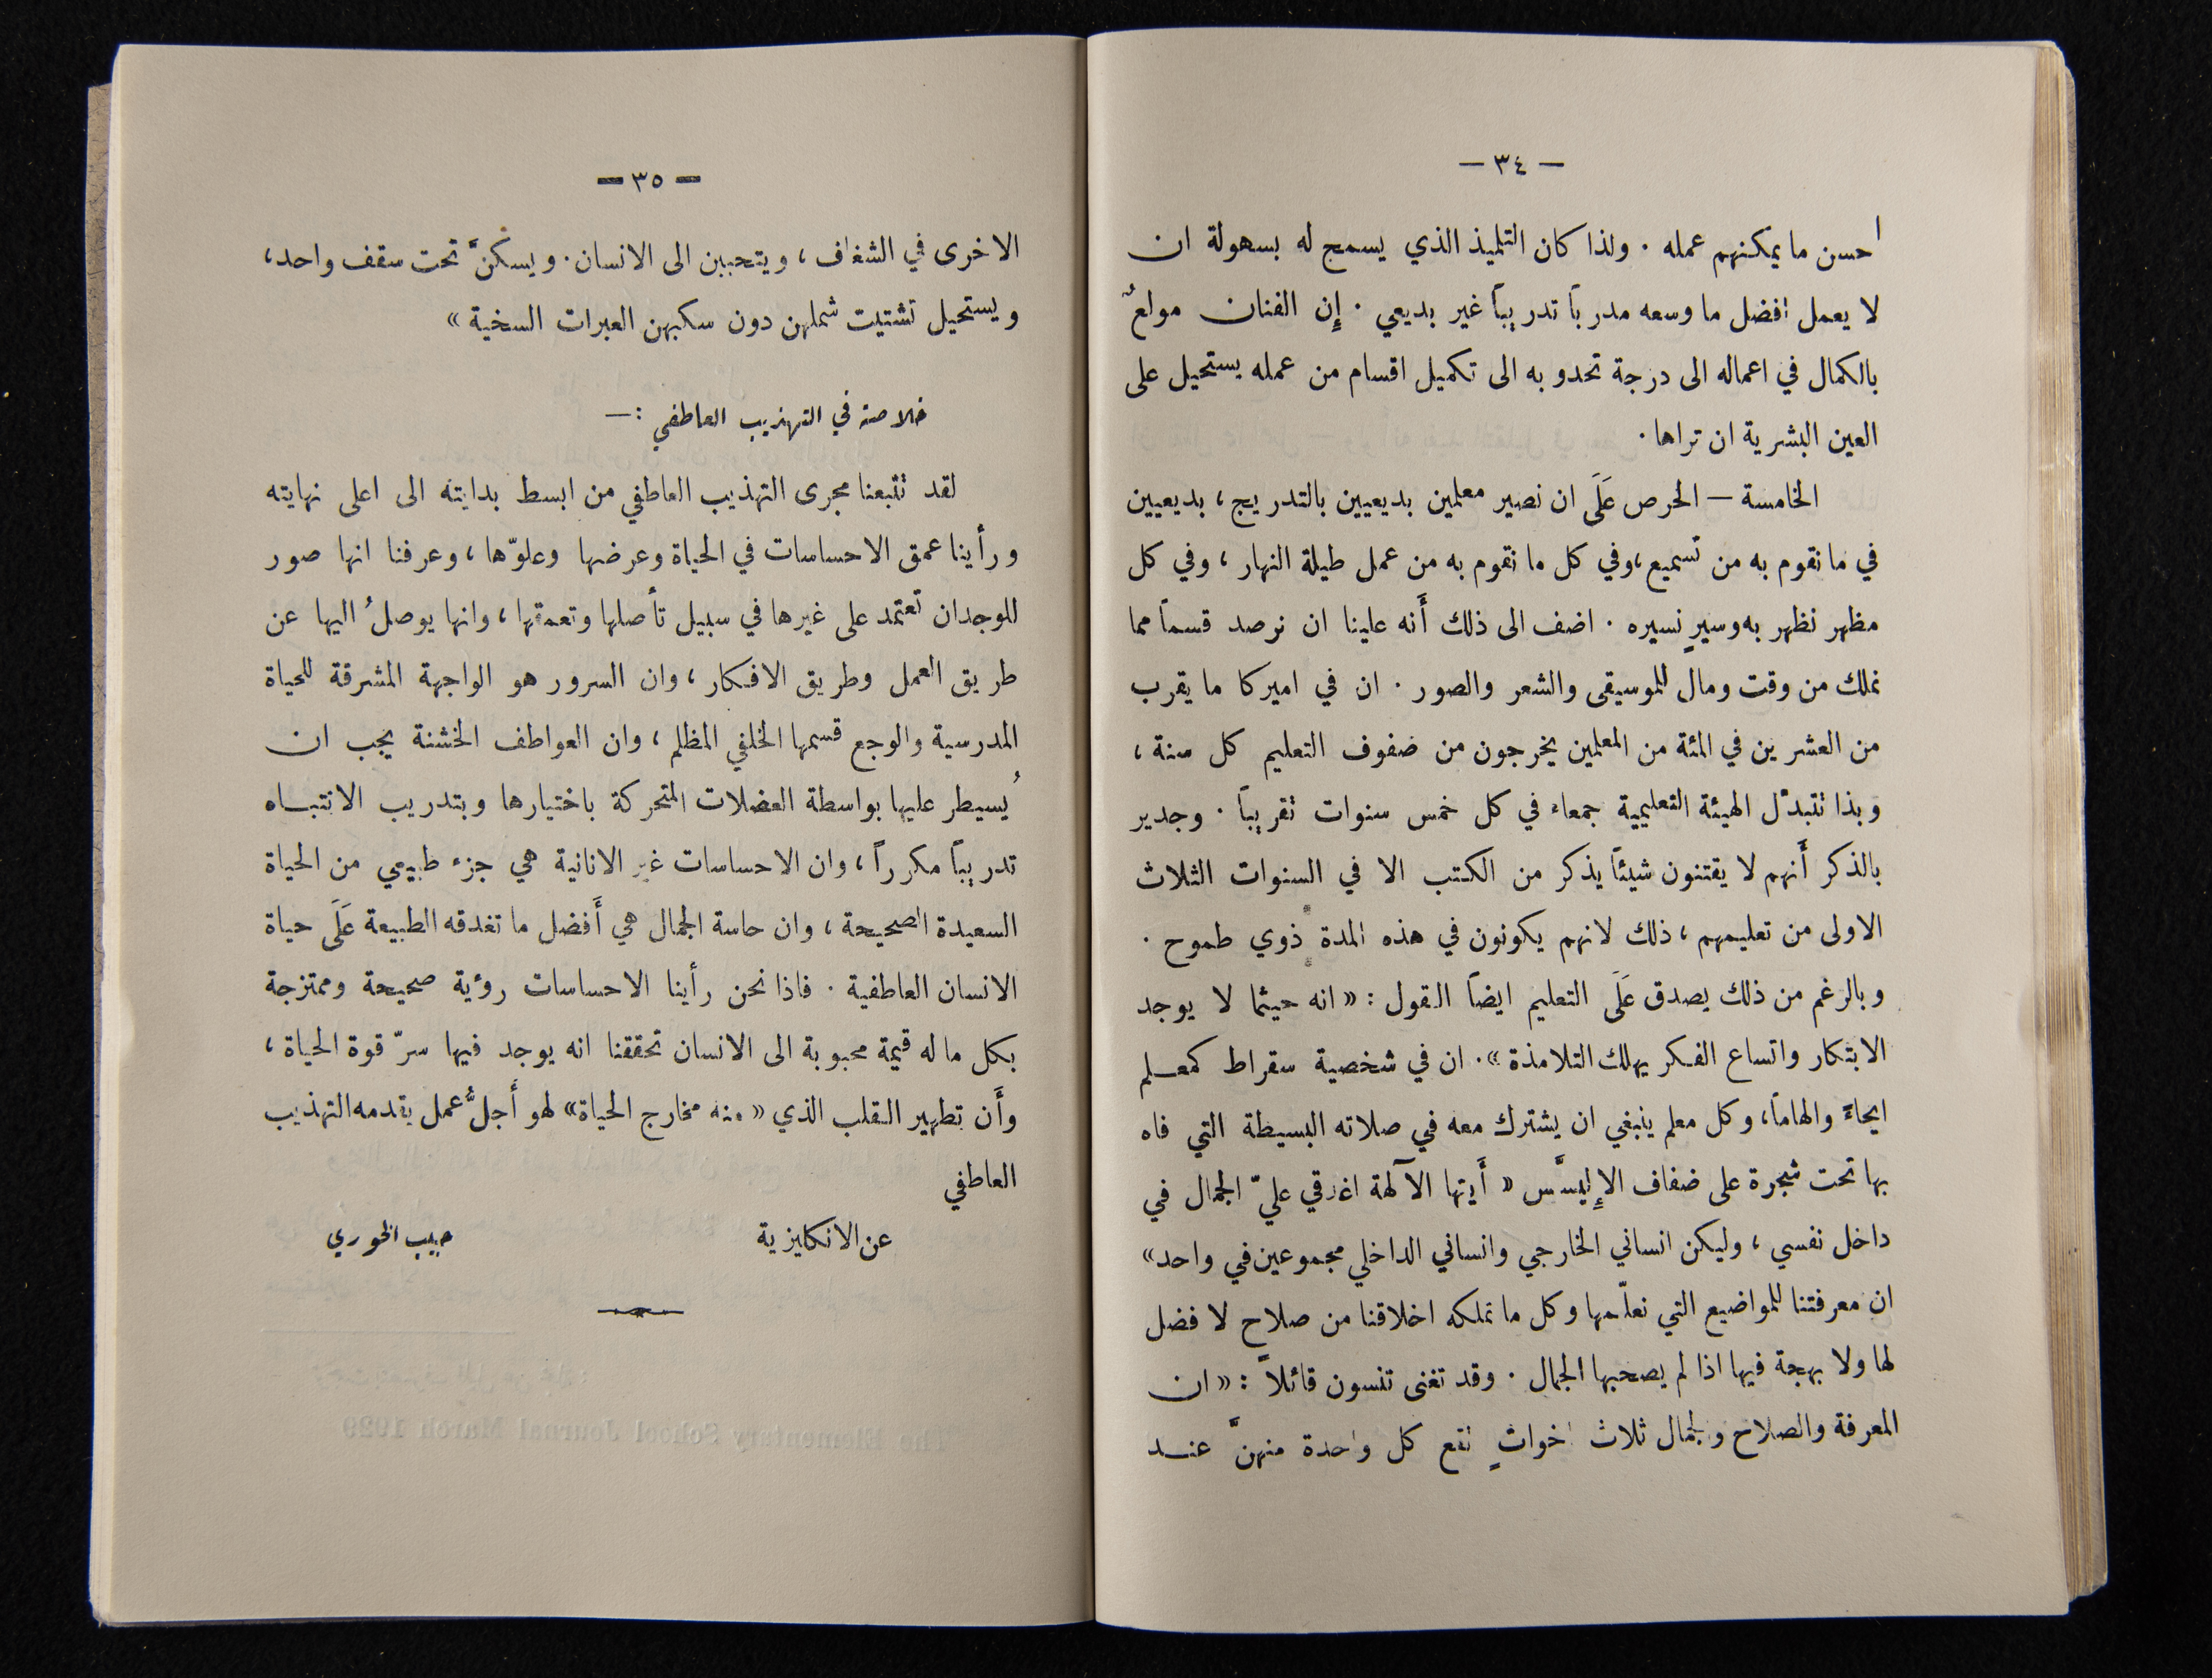 — ٣٤ —
احسن ما يمكنهم عمله . ولذا كان التلميذ الذي يسمح له بسهولة ان
لا يعمل افضل ما وسعه مدرباً تدريباً غير بديعي . إِن الفنان مولعٌ
بالكمال في اعماله الى درجة تحدو به الى تكميل اقسام من عمله يستحيل على
العين البشرية ان تراها .
الخامسة — الحرص عَلَى ان نصير معلمين بديعيين بالتدريج ، بديعيين
في ما نقوم به من تسميع ، وفي كل ما نقوم به من عمل طيلة النهار ، وفي كل
مظهر نظهر به وسيرٍ نسيره . اضف الى ذلك أَنه علينا ان نرصد قسماً مما
نملك من وقت ومال للموسيقى والشعر والصور . ان في اميركا ما يقرب
من العشرين في المئة من المعلمين يخرجون من صفوف التعليم كل سنة ،
وبذا تتبدّل الهيئة التعليمية جمعاء في كل خمس سنوات تقريباً . وجدير
بالذكر أَنهم لا يقتنون شيئاً يذكر من الكتب الا في السنوات الثلاث
الاولى من تعليمهم ، ذلك لانهم يكونون في هذه المدة ذوي طموح .
وبالرغم من ذلك يصدق عَلَى التعليم ايضاً القول : « انه حيثما لا يوجد
الابتكار واتساع الفكر يهلك التلامذة » . ان في شخصية سقراط كمعلم
ايحاءً والهاماً ، وكل معلم ينبغي ان يشترك معه في صلاته البسيطة التي فاه
بها تحت شجرة على ضفاف الإِليسَّس « أَيتها الآلهة اغدقي عليّ الجمال في
داخل نفسي ، وليكن انساني الخارجي وانساني الداخلي مجموعين في واحد »
ان معرفتنا للمواضيع التي نعلّمها وكل ما تملكه اخلاقنا من صلاح لا فضل
لها ولا بهجة فيها اذا لم يصحبها الجمال . وقد تغنى تنسون قائلاً : « ان
المعرفة والصلاح والجمال ثلاث اخواتٍ تقع كل واحدة منهنَّ عند
— ٣٥ —
الاخرى في الشغاف ، ويتحببن الى الانسان . ويسكنَّ تحت سقف واحد ،
ويستحيل تشتيت شملهن دون سكبهن العبرات السخية »
خلاصة في التهذيب العاطفي : —
لقد تتبعنا مجرى التهذيب العاطفي من ابسط بدايته الى اعلى نهايته
ورأينا عمق الاحساسات في الحياة وعرضها وعلوّها ، وعرفنا انها صور
للوجدان تعتمد على غيرها في سبيل تأصلها وتعمقها ، وانها يوصلُ اليها عن
طريق العمل وطريق الافكار ، وان السرور هو الواجهة المشرقة للحياة
المدرسية والوجع قسمها الخلفي المظلم ، وان العواطف الخشنة يجب ان
يُسيطر عليها بواسطة العضلات المتحركة باختيارها وبتدريب الانتباه
تدريباً مكرراً ، وان الاحساسات غير الانانية هي جزء طبيعي من الحياة
السعيدة الصحيحة ، وان حاسة الجمال هي أَفضل ما تغدقه الطبيعة عَلَى حياة
الانسان العاطفية . فاذا نحن رأينا الاحساسات رؤية صحيحة وممتزجة
بكل ما له قيمة محبوبة الى الانسان تحققنا انه يوجد فيها سرّ قوة الحياة ،
وأَن تطهير القلب الذي « منه مخارج الحياة » لهو أَجلُّ عمل يقدمه التهذيب
العاطفي
عن الانكليزية حبيب الخوري